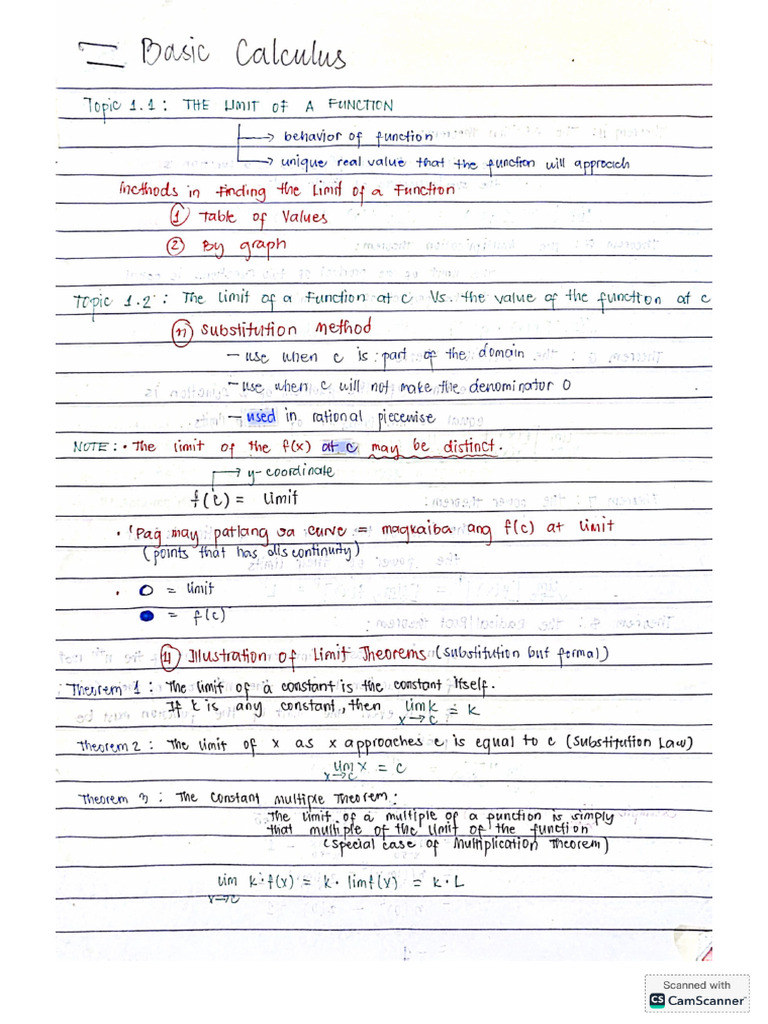 Basic Calculus
Topic 1.1: THE LIMIT OF A FUNCTION
behavior of function
unique real value that the function will approach
Methods in Finding the Limit of a Function
① Table of Values
② By graph
Topic 1.2: The Limit of a Function at c Vs. the value of the function at c
③ Substitution Method
- use when c is part of the domain
- use when c will not make the denominator 0
- used in rational piecewise
NOTE: • The limit of the f(x) at c may be distinct.
→ y-coordinate
f(c) = limit
• Pag may patlang sa curve = magkaiba ang f(c) at limit
(points that has discontinuity)
• O = limit
● = f(c)
④ Illustration of Limit Theorems (substitution but formal)
Theorem 1: The limit of a constant is the constant itself.
If k is any constant, then lim k = k
x→c
Theorem 2: The limit of x as x approaches c is equal to c (Substitution Law)
lim x = c
x→c
Theorem 3: The Constant Multiple Theorem:
The limit of a multiple of a function is simply
that multiple of the limit of the function
(special case of Multiplication Theorem)
lim k·f(x) = k·lim f(x) = k·L
x→c
Scanned with
CS CamScanner